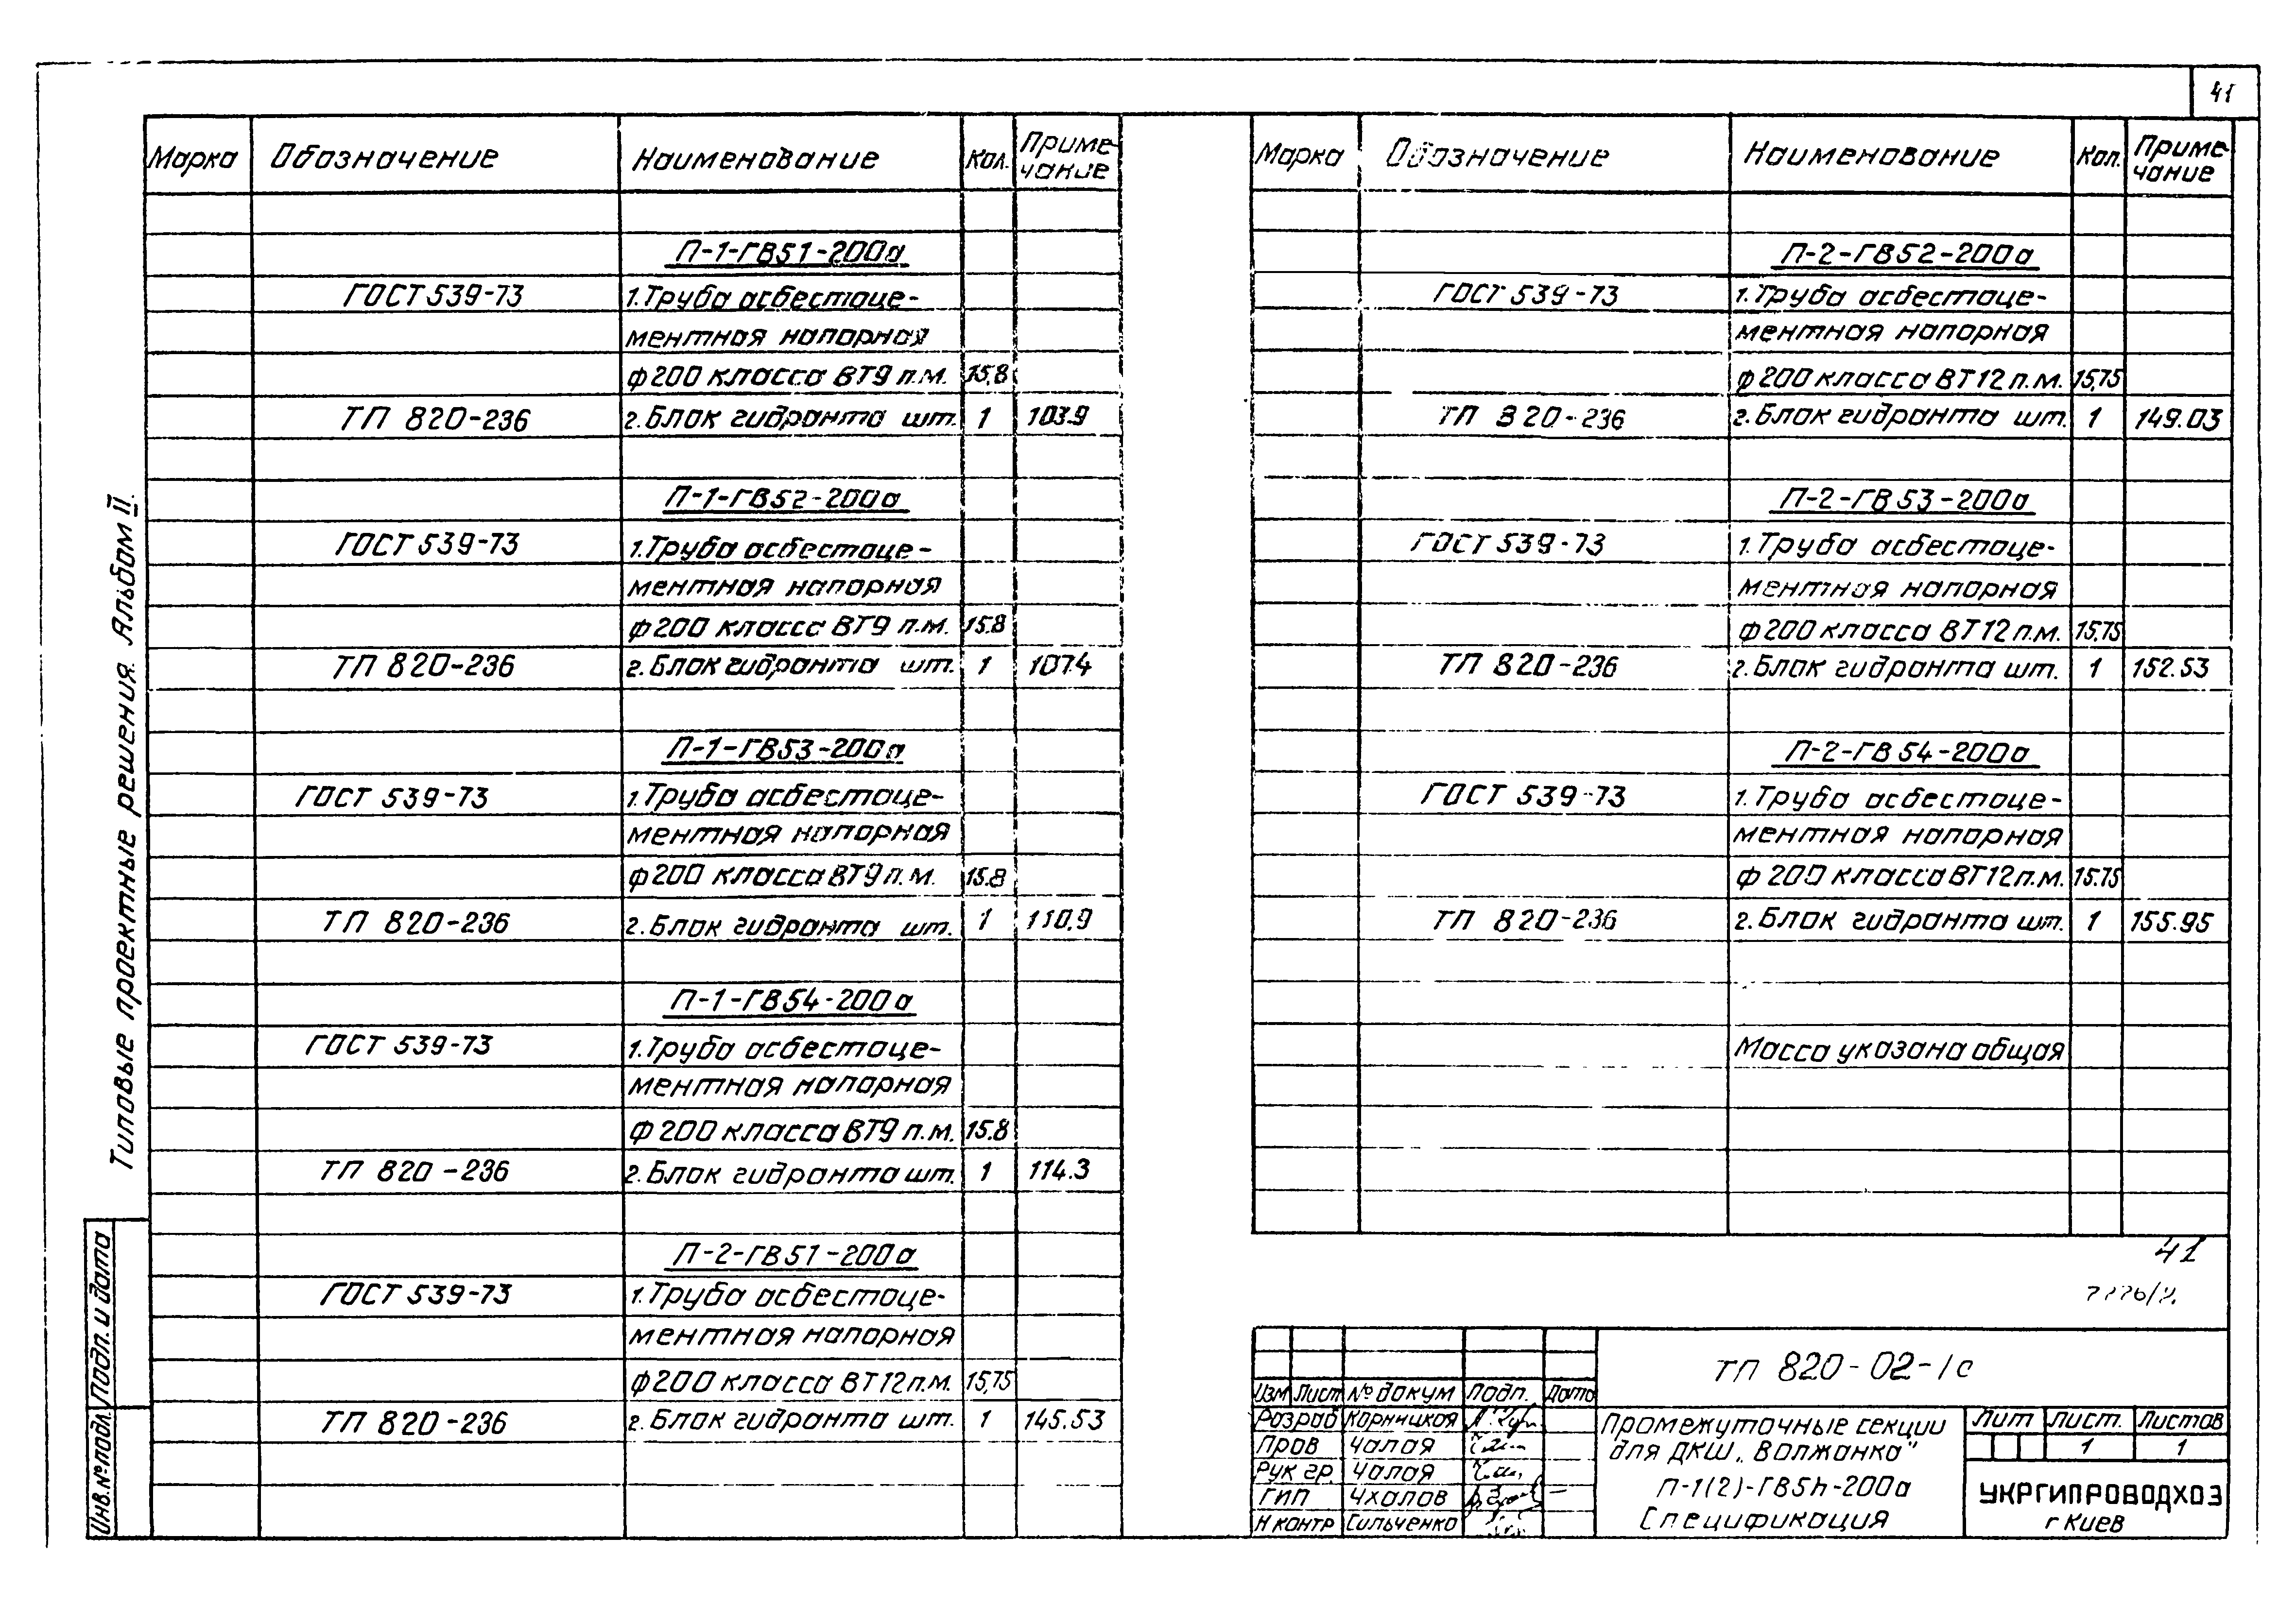 41
Марка Обозначение Наименование Кол. Приме-
чание
П-1-ГВ51-200а
ГОСТ 539-73 1.Труба асбестоце-
ментная напорная
ф200 класса ВТ9 п.м. 15,8
ТП 820-236 2.Блок гидранта шт. 1 103.9
П-1-ГВ52-200а
ГОСТ 539-73 1.Труба асбестоце-
ментная напорная
ф200 класса ВТ9 п.м. 15.8
ТП 820-236 2.Блок гидранта шт. 1 107.4
П-1-ГВ53-200а
ГОСТ 539-73 1.Труба асбестоце-
ментная напорная
ф200 класса ВТ9 п.м. 15.8
ТП 820-236 2.Блок гидранта шт. 1 110,9
П-1-ГВ54-200а
ГОСТ 539-73 1.Труба асбестоце-
ментная напорная
ф200 класса ВТ9 п.м. 15.8
ТП 820-236 2.Блок гидранта шт. 1 114.3
П-2-ГВ51-200а
ГОСТ 539-73 1.Труба асбестоце-
ментная напорная
ф200 класса ВТ12п.м. 15,75
ТП 820-236 2.Блок гидранта шт. 1 145.53
Марка Обозначение Наименование Кол. Приме-
чание
П-2-ГВ52-200а
ГОСТ 539-73 1.Труба асбестоце-
ментная напорная
ф200 класса ВТ12 п.м. 15,75
ТП 820-236 2.Блок гидранта шт. 1 149.03
П-2-ГВ53-200а
ГОСТ 539-73 1.Труба асбестоце-
ментная напорная
ф200 класса ВТ12 п.м. 15.75
ТП 820-236 2.Блок гидранта шт. 1 152.53
П-2-ГВ54-200а
ГОСТ 539-73 1.Труба асбестоце-
ментная напорная
ф200 класса ВТ12п.м. 15.75
ТП 820-236 2.Блок гидранта шт. 1 155.95
Масса указана общая
41
Типовые проектные решения. Альбом II.
Инв.№подл. Подп. и дата
ТП 820-02-1с
Изм Лист № докум Подп. Дата
Разраб Корницкая
Пров Чалая
Рук гр. Чалая
ГИП Чхалов
Н контр Сильченко
Промежуточные секции
для ДКШ „Волжанка"
П-1(2)-ГВ5h-200а
Спецификация
Лит Лист. Листов
1 1
УКРГИПРОВОДХОЗ
г Киев